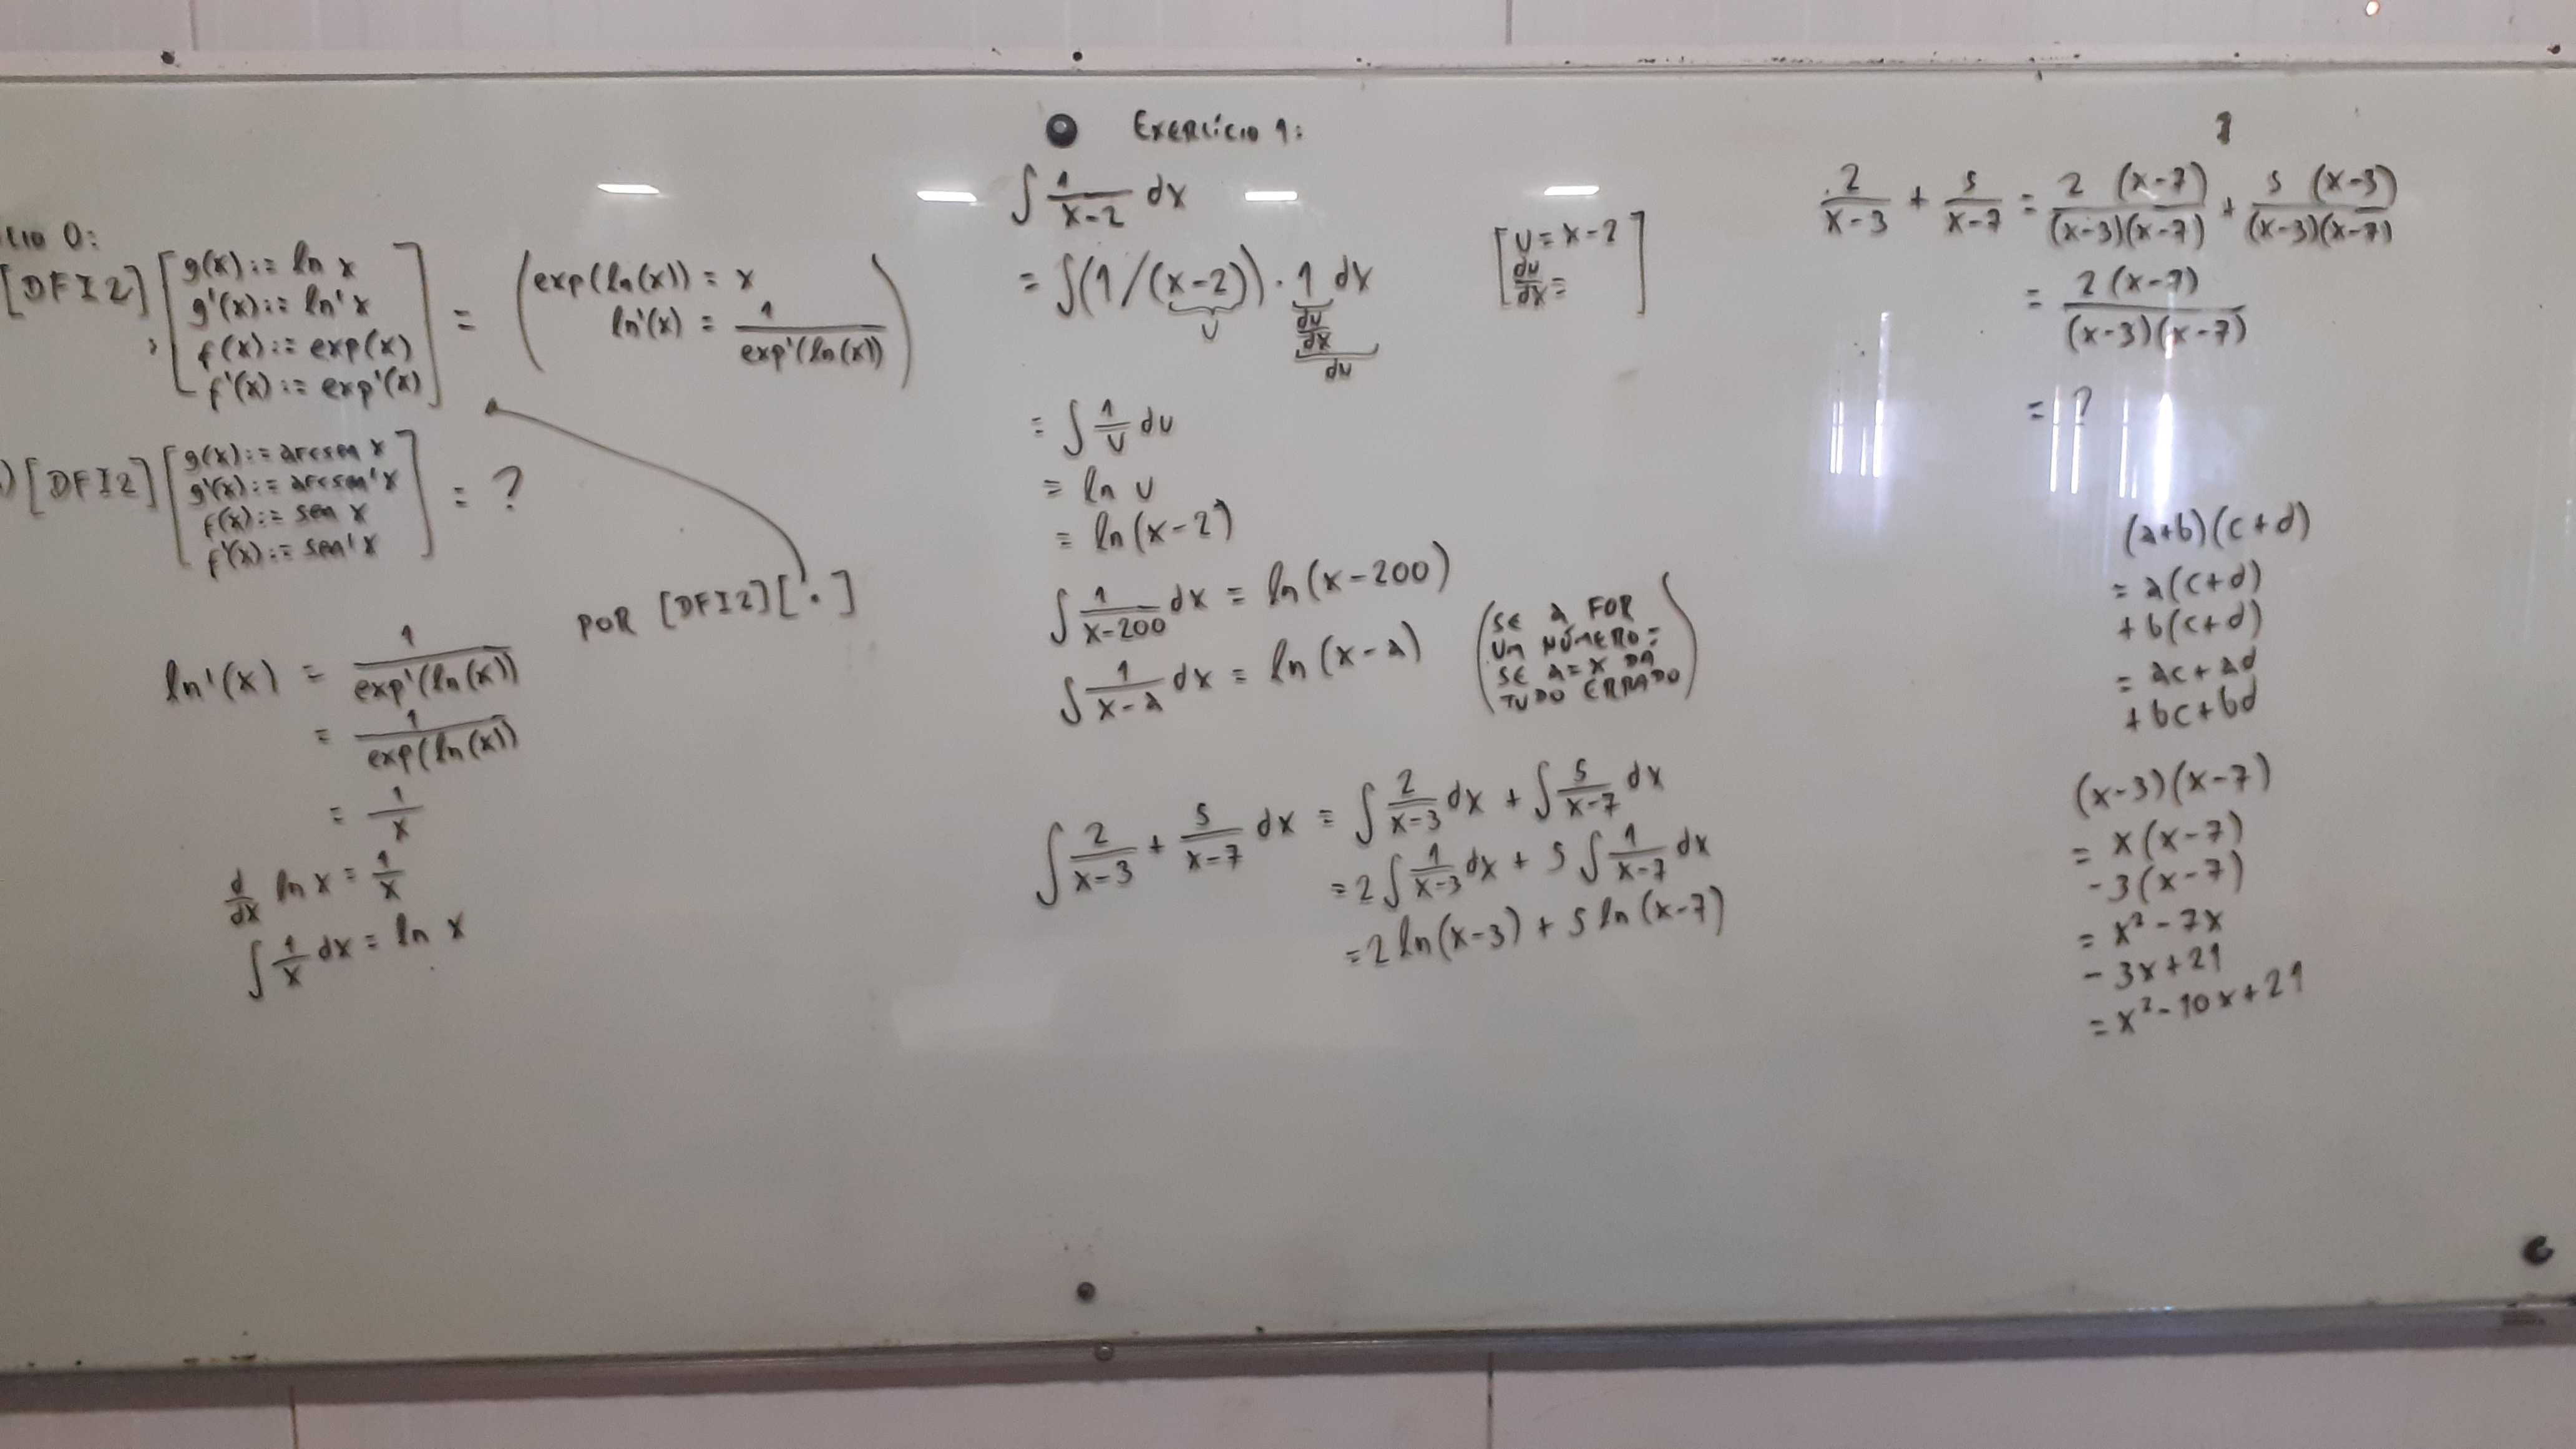 cio 0:
[DFI2] [g(x) := ln x
g'(x) := ln' x
f(x) := exp(x)
f'(x) := exp'(x)] = (exp(ln(x)) = x
ln'(x) = 1/exp'(ln(x)))
) [DFI2] [g(x) := arcsen x
g'(x) := arcsen' x
f(x) := sen x
f'(x) := sen' x] = ?
ln'(x) = 1/exp'(ln(x)) POR [DFI2][·]
= 1/exp(ln(x))
= 1/x
d/dx ln x = 1/x
∫ 1/x dx = ln x
EXERCÍCIO 1:
∫ 1/(x-2) dx
= ∫(1/(x-2)) · 1 dx [u = x-2
u du/dx du/dx =]
du
= ∫ 1/u du
= ln u
= ln(x-2)
∫ 1/(x-200) dx = ln(x-200)
∫ 1/(x-a) dx = ln(x-a) (SE a FOR
UM NÚMERO =
SE a=x DÁ
TUDO ERRADO)
∫ 2/(x-3) + 5/(x-7) dx = ∫ 2/(x-3) dx + ∫ 5/(x-7) dx
= 2 ∫ 1/(x-3) dx + 5 ∫ 1/(x-7) dx
= 2 ln(x-3) + 5 ln(x-7)
2/(x-3) + 5/(x-7) = 2 (x-7)/(x-3)(x-7) + 5 (x-3)/(x-3)(x-7)
= 2(x-7)/(x-3)(x-7)
= ?
(a+b)(c+d)
= a(c+d)
+ b(c+d)
= ac+ad
+ bc+bd
(x-3)(x-7)
= x(x-7)
-3(x-7)
= x²-7x
- 3x+21
= x²-10x+21